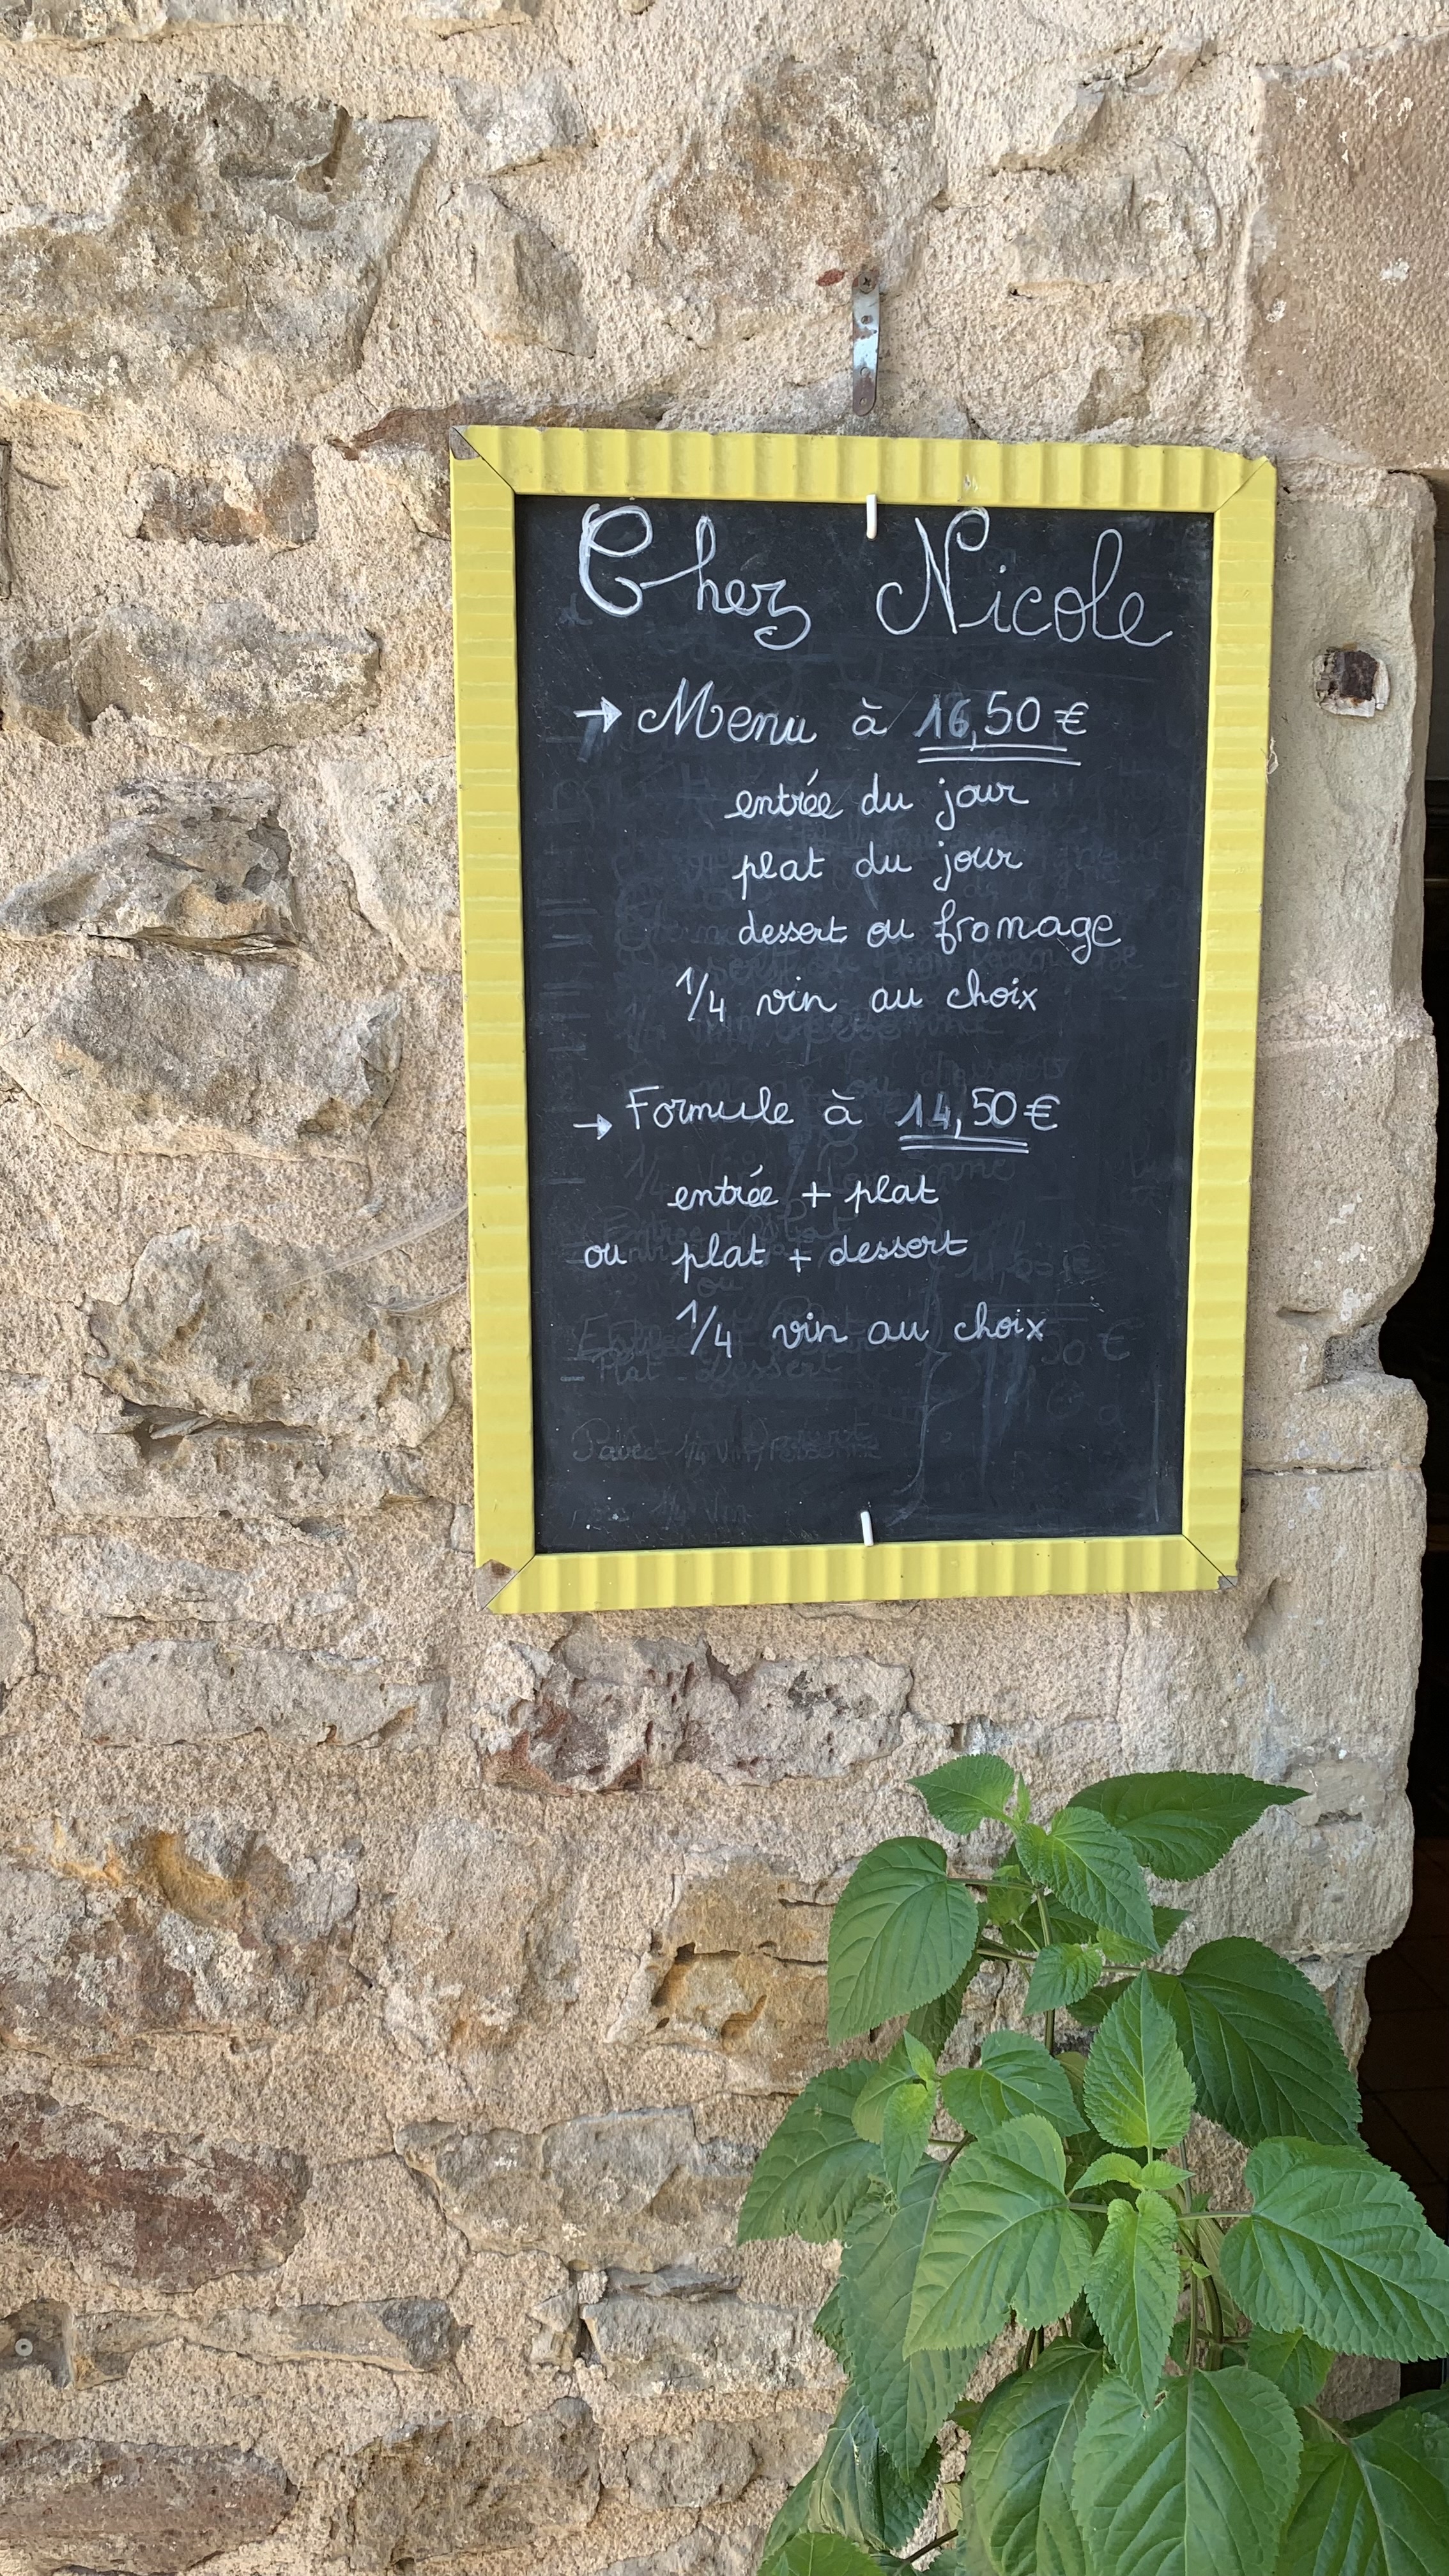 Chez Nicole
→ Menu à 16,50 €
entrée du jour
plat du jour
dessert ou fromage
1/4 vin au choix
→ Formule à 14,50 €
entrée + plat
ou plat + dessert
1/4 vin au choix